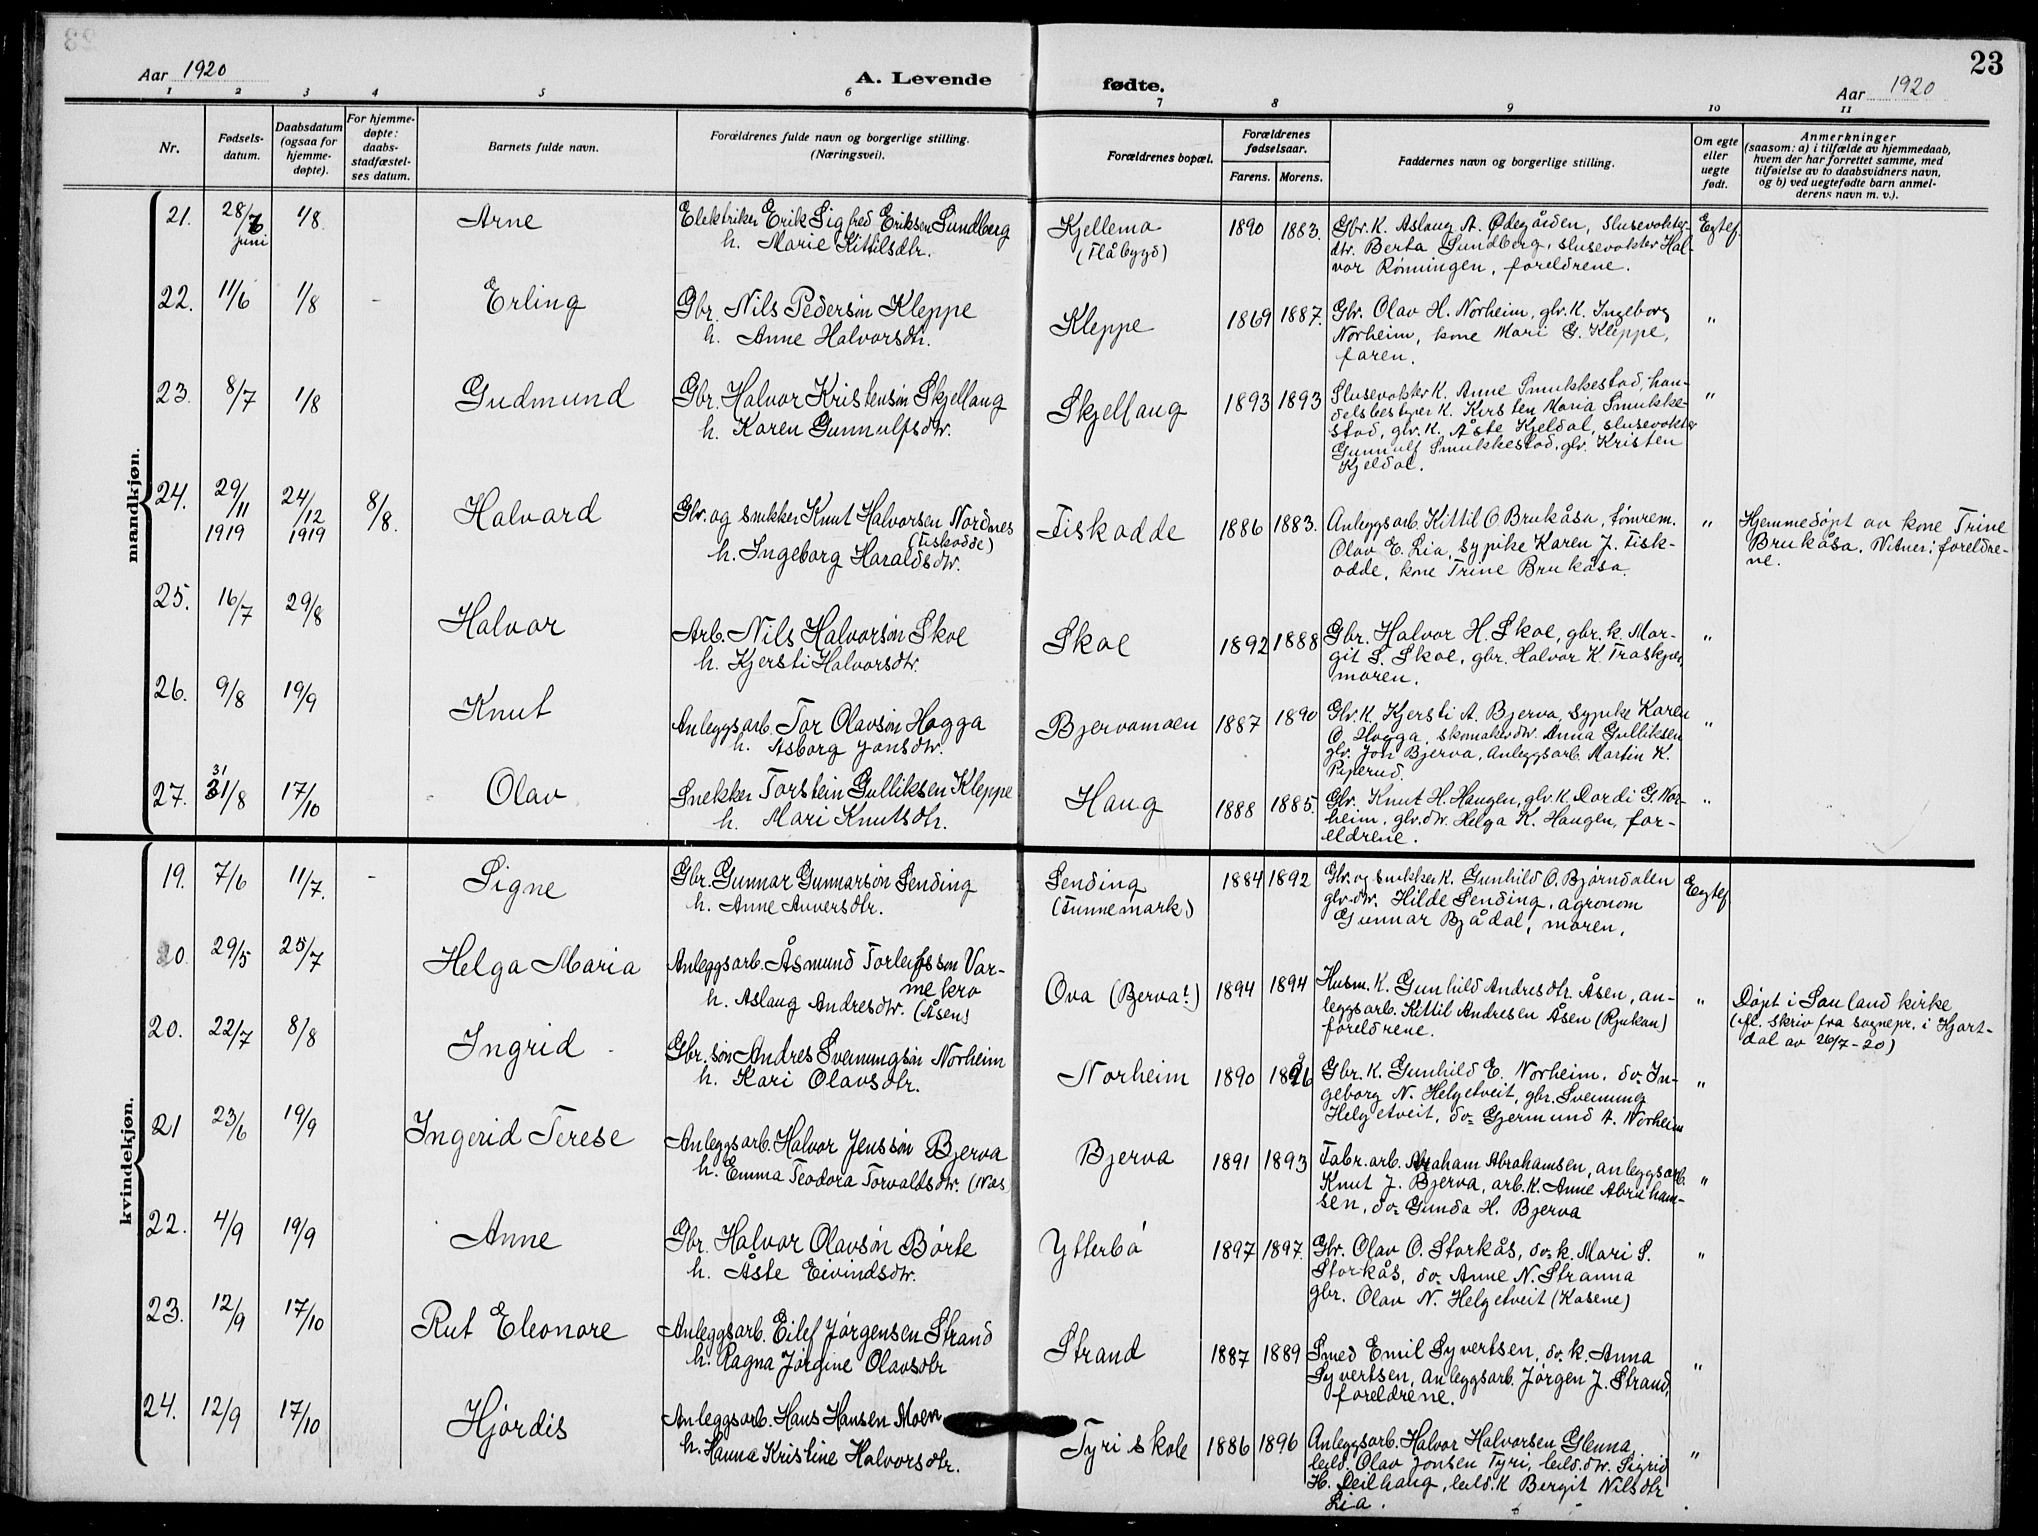 23
Aar 1920
A. Levende fødte.
Aar 1920
1 2 3 4 5 6 7 8 9 10 11
Nr.
Fødsels-
datum.
Daabsdatum
(ogsaa for
hjemme-
døpte).
For hjemme-
døpte:
daabs-
stadfæstel-
ses datum.
Barnets fulde navn.
Forældrenes fulde navn og borgerlige stilling.
(Næringsvei).
Forældrenes bopæl.
Forældrenes
fødselsaar.
Farens. Morens.
Faddernes navn og borgerlige stilling.
Om egte
eller
uegte
født.
Anmerkninger
(saasom: a) i tilfælde av hjemmedaab,
hvem der har forrettet samme, med
tilføielse av to daabsvidners navn,
og b) ved uegtefødte barn anmel-
derens navn m. v.).
mandkjøn.
21. 28/6 juni 1/8. Arne
Elektriker Erik Sigfred Eriksen Sundberg
h. Marie Kittilsdtr.
Kjellemo
(Flåbygd)
1890 1883.
Gbr. K. Aslaug A. Ødegården, slusevokter-
dtr. Berta Sundberg, slusevokter Hal-
vor Rønningen, foreldrene.
Egtef.
22. 11/6 1/8 - Erling
Gbr. Nils Pedersøn Kleppe
h. Anne Halvorsdtr.
Kleppe
1869 1887.
Gbr. Olav H. Norheim, gbr. K. Ingeborg
Norheim, kone Mari G. Kleppe,
faren.
"
23. 8/7 1/8 Gudmund
Gbr. Halvor Kristensøn Skjellaug
h. Karen Gunnulfsdtr.
Skjellaug
1893 1893
Slusevokter K. Anne Smukkestad, han-
delsbestyrer K. Kirsten Maria Smukke-
stad, gbr. K. Åste Kjeldal, slusevokter
Gunnulf Smukkestad, gbr. Kristen
Kjeldal.
"
24. 29/11 1919 24/12 1919 8/8. Halvard
Gbr. og snikker Knut Halvorsen Nordnes
(Fiskodde)
h. Ingeborg Haraldsdtr.
Fiskodde
1886 1883.
Anleggsarb. Kittil O Brukåsa, tømrem.
Olav E. Lia, sypike Karen J. Fisk-
odde, kone Trine Brukåsa.
"
Hjemmedøpt av kone Trine
Brukåsa. Vitner: foreldre-
ne.
25. 16/7 29/8 Halvor
Arb. Nils Halvorsøn Skoe
h. Kjersti Halvorsdtr.
Skoe
1892 1888
Gbr. Halvor H. Skoe, gbr. k. Mar-
git S. Skoe, gbr. Halvor K. Traskjær,
moren.
"
26. 9/8 19/9 Knut
Anleggsarb. Tor Olavsøn Hogga
h. Åsborg Jonsdtr.
Bjervamoen
1887 1890
Gbr. K. Kjersti A. Bjerva, sypike Karen
O. Hogga, skomakerdtr. Anna Gulliksen
gbr. Jon Bjerva, anleggsarb. Martin K.
Piperud.
"
27. 31/8 31 17/10 Olav
Snekker Torstein Gulliksen Kleppe
h. Mari Knutsdtr.
Haug
1888 1885.
Gbr. Knut H. Haugen, gbr. K. Dordi G. Nor-
heim, gbr. dtr. Helga K. Haugen, for-
eldrene.
"
kvindekjøn.
19. 7/6 11/7. - Signe
Gbr. Gunnar Gunnarsøn Sending
h. Anne Anversdtr.
Sending
(Tunnemark)
1884 1892
Gbr. og snikker K. Gunhild O. Bjørndalen
gbr. dtr. Hilde Sending, agronom
Gunnar Bjådal, moren.
Egtef
20. 29/5 25/7 Helga Maria
Anleggsarb. Åsmund Torleifsson Var-
mekro
h. Aslaug Andresdtr. (Åsen)
Ova (Bjerva?)
1894 1894
Husm. K. Gunhild Andresdtr. Åsen, an-
leggsarb. Kittil Andresen Åsen (Rjukan)
foreldrene.
"
Døpt i Sauland kirke
(ifl. skriv fra sognepr. i Hjart-
dal av 26/7-20)
20. 22/7 8/8 Ingrid
Gbr. søn Andres Sveinungsøn Norheim
h. Kari Olavsdtr.
Norheim
1890 1896
Gbr. K. Gunhild E. Norheim, do. In-
geborg N. Helgetveit, gbr. Sveinung
Helgetveit, do. Gjermund A. Norheim
"
21 23/6 19/9 Ingerid Terese
Anleggsarb. Halvor Jenssøn Bjerva
h. Emma Teodora Torvaldsdtr. (Næs)
Bjerva
1891 1893
Fabr. arb. Abraham Abrahamsen, anleggsarb.
Knut J. Bjerva, arb. K. Anne Abraham-
sen, do. Gunda H. Bjerva
"
22. 4/9 19/9 Anne
Gbr. Halvor Olavsøn Børte
h. Åste Eivindsdtr.
Ytterbø
1897 1897.
Gbr. Olav O. Storkås, do. k. Mari S.
Storkås, do. Anne N. Stranna
gbr. Olav N. Helgetveit (Kasene)
"
23. 12/9 17/10 Rut Eleonore
Anleggsarb. Eilef Jørgensen Strand
h. Ragna Jørgine Olavsdtr
Strand
1887 1889
Smed Emil Syvertsen, do. k. Anna
Syvertsen, anleggsarb. Jørgen J. Strand,
foreldrene.
"
24. 12/9 17/10 Hjørdis
Anleggsarb. Hans Hansen Moen
h. Hanna Kristine Halvorsdtr.
Tyri skole
1886 1896
Anleggsarb. Halvor Halvorsen Glenna,
leild. Olav Jonsen Tyri, leild. dtr. Sigrid
H. Deilhaug, leild. K Bergit Nilsdtr
Lia.
"